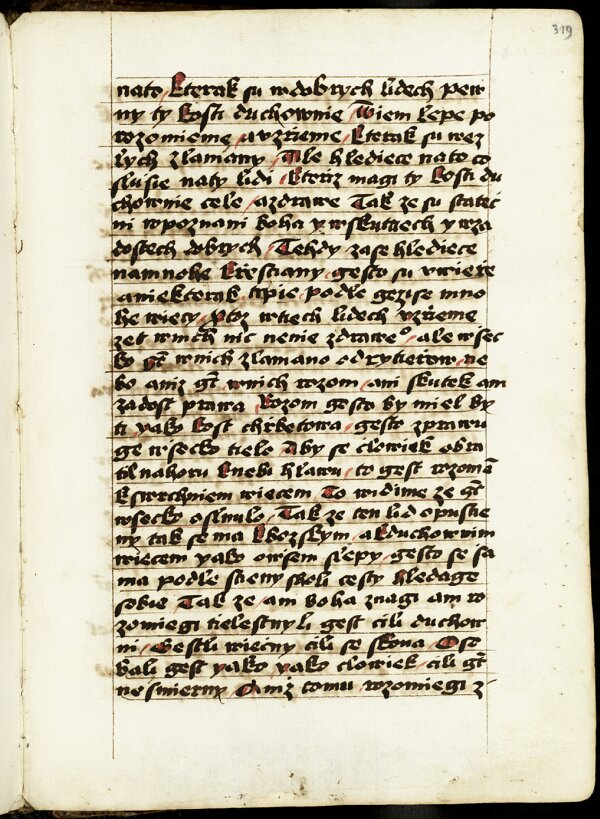 319
nato kterak su w dobrych lidech pew
ny ty kosti duchownie Wiem lepe po
rozomieme a vzrzieme kterak su wez
lych zlamany Ale hlediece nato co
slusie naty lidi kteriz magi ty kosti du
chownie cele a zdrawe Tak ze su statec
ni w poznani boha y w skutciech y w za
dostech dobrych Tehdy zase hlediece
na mnohe krzestiany gesto su w wierze
a niekterak podle gezise mno
he wiecy w tiech lidech vzrzieme
zet w nich nic nenie zdraweo ale wsec
ko gt w nich zlamano od rytierow ne
bo aniz gt w nich rozom ani skutek ani
zadost prawa Rozom gesto by miel by
ti yako kost chrbetowa gesto zprawu
ge wsecko tielo Aby se clowiek obra
til nahoru knebi hlawu to gest rozom
k swrchniem wiecem To widime ze gt
wsecko oslnulo Tak ze ten lid opustie
ny tak se ma kbozskym a kduchownim
wiecem yako owsem slepy gesto se sa
ma podle stieny sholi cesty hledage
sobie Tak ze ani boha znagi ani ro
zomiegi tielestny li gest cili duchow
ni Gestli wiecny cili se skona Oso
bali gest yako yako clowiek cili gt
nesmierny Aniz tomu rozomiegi z